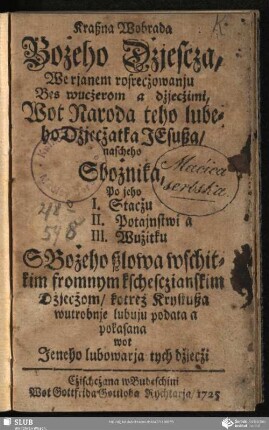 Kraßna Wobrada
Bożeho Dżjescza,
We rjanem rosreczowanju
Bes wuczerom a dżjeczimi,
Wot Naroda teho lube-
ho Dżjeczatka JEsußa/
nascheho
Sbożnika,
Po jeho
I. Staczu
II. Potajnstwi a
III. Wużitku
S Bożeho ßlowa wschit-
kim fromnym kschescżianskim
Dżjeczom/ kotreż Krystußa
wutrobnje lubuju podata a
pokasana
wot
Jeneho lubowarja tych dżjeczi
Cżischcżana w Budeschini
Wot Gottfrida Gottloba Rychtarja/ 1725
Macica
serbska.
48°
548
SLUB